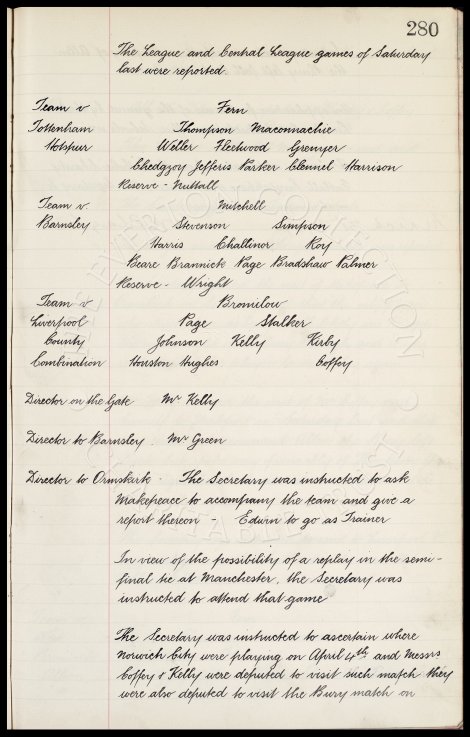 280
The League and Central League games of Saturday
last were reported
Team v Fern
Tottenham Thompson Maconnachie
Hotspur Weller Fleetwood Grenyer
Chedgzoy Jefferis Parker Clennel Harrison
Reserve - Nuttall
Team v. Mitchell
Barnsley Stevenson Simpson
Harris Challinor Roy
Beare Brannick Page Bradshaw Palmer
Reserve - Wright
Team v Bromilow
Liverpool Page Stalker
County Johnson Kelly Kirby
Combination Houston Hughes Coffey
Director on the Gate Mr Kelly
Director to Barnsley. Mr Green
Director to Ormskirk - The Secretary was instructed to ask
Makepeace to accompany the team and give a
report thereon - Edwin to go as Trainer
In view of the possibility of a replay in the semi-
final tie at Manchester, the Secretary was
instructed to attend that game
The Secretary was instructed to ascertain where
Norwich City were playing on April 4th and Messrs
Coffey & Kelly were deputed to visit such match they
were also deputed to visit the Bury match on